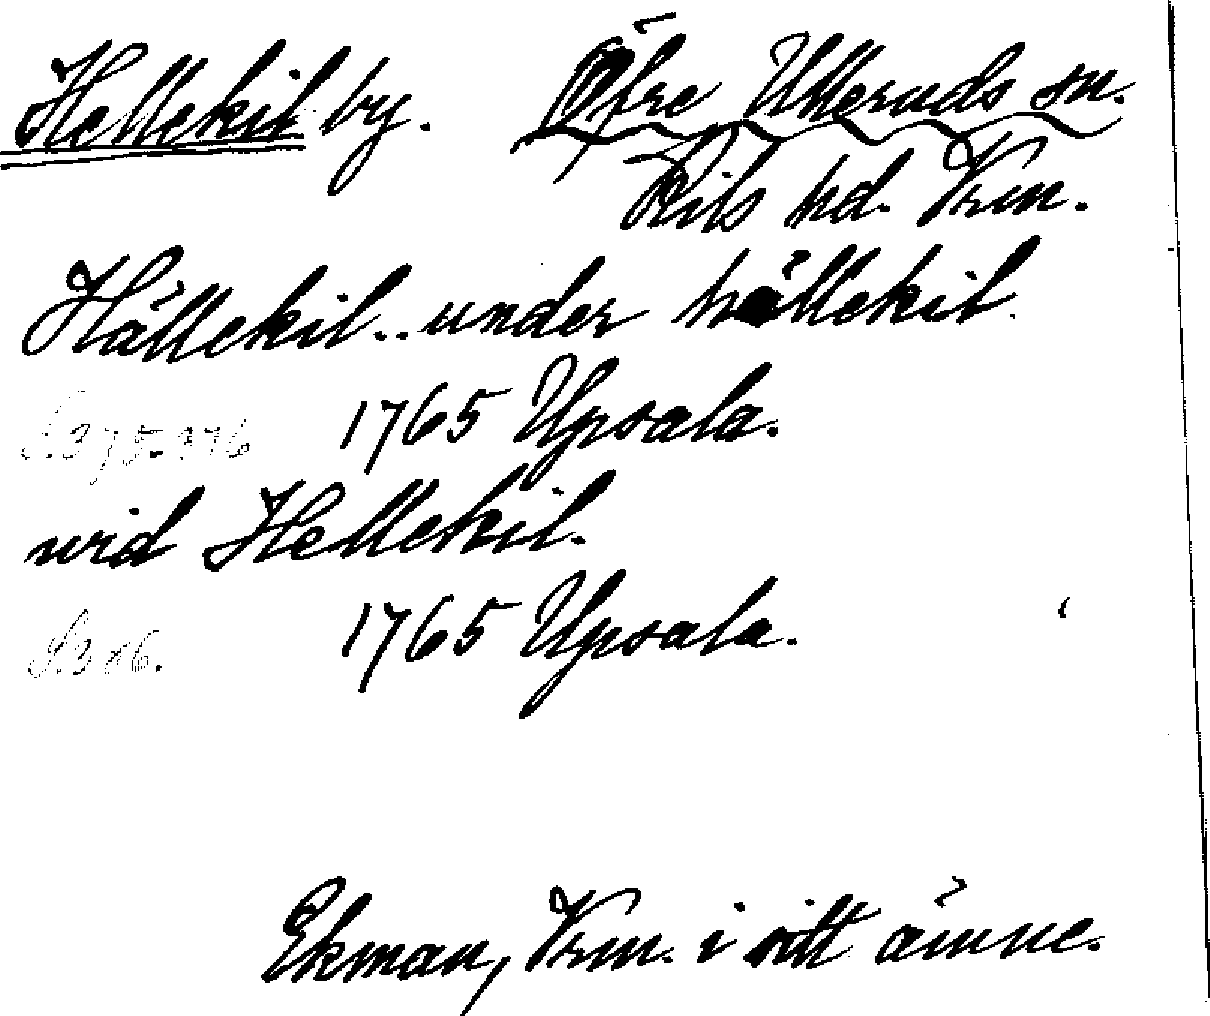 Hellekil by. Öfre Ulleruds sn.
Kils hd. Vrm.
Hällekil.. under hällekil.
S.375-376 1765 Upsala.
wid Hellekil.
S.386. 1765 Upsala.
Ekman, Vrm. i sitt ämne.